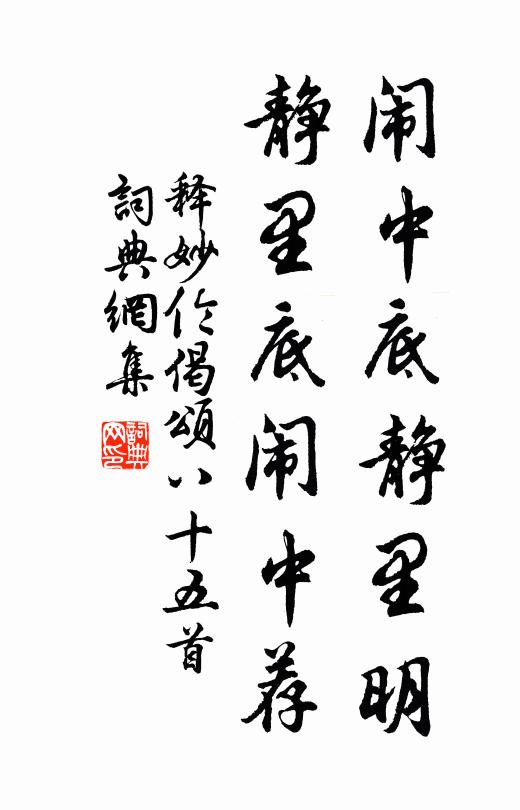 闹中底静里明
静里底闹中荐
释妙伦偈颂八十五首
詞典網集
詞典网印